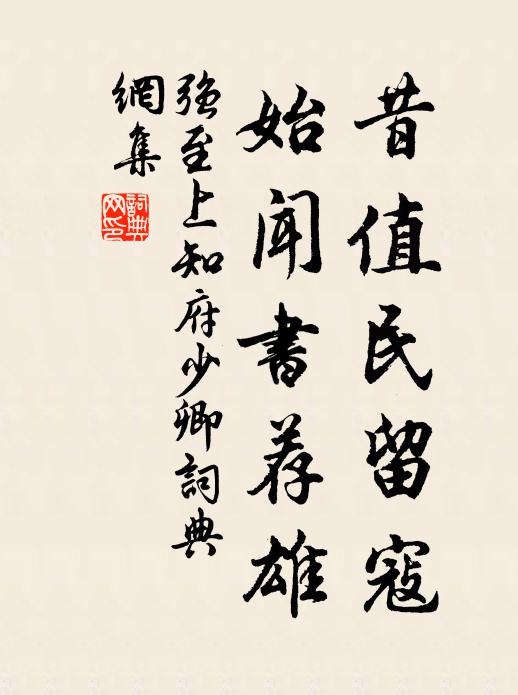 昔值民留寇
始闻書荐雄
強至上知府少卿詞典
網集
詞典
网印